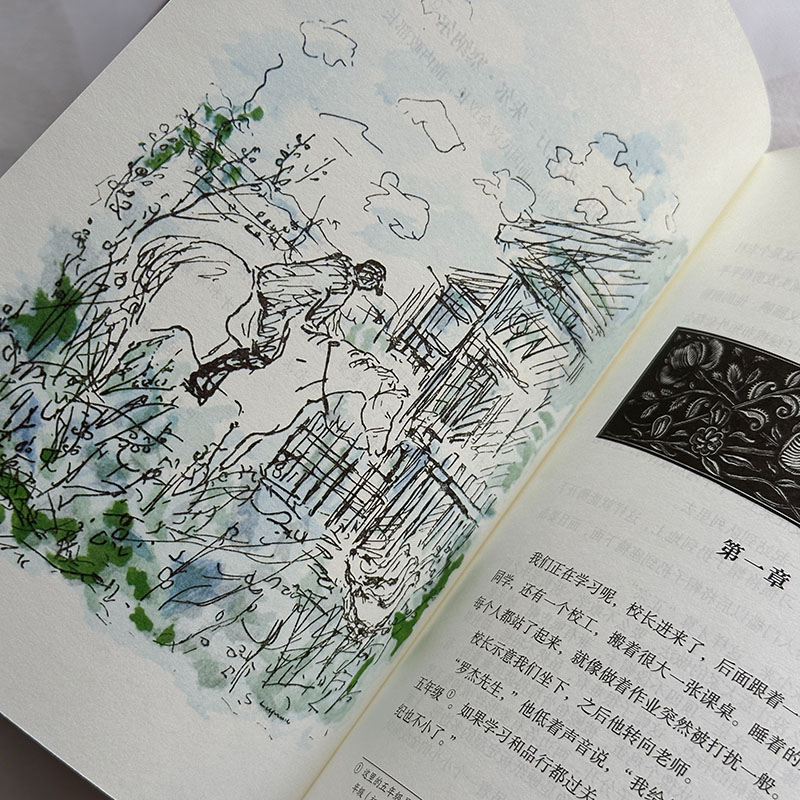 第一章
我们正在学习呢，校长进来了，后面跟着一
同学，还有一个校工，搬着很大一张课桌。睡着的
每个人都站了起来，就像做着作业突然被打扰一般。
校长示意我们坐下，之后他转向老师。
“罗杰先生，”他低着声音说，“我给
五年级①。如果学习和品行都过关
纪也不小了。”
①这里的五年级
年级（